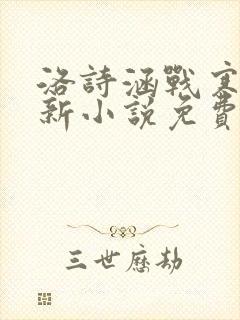 洛詩涵戰寒
新小說免費
三世歷劫